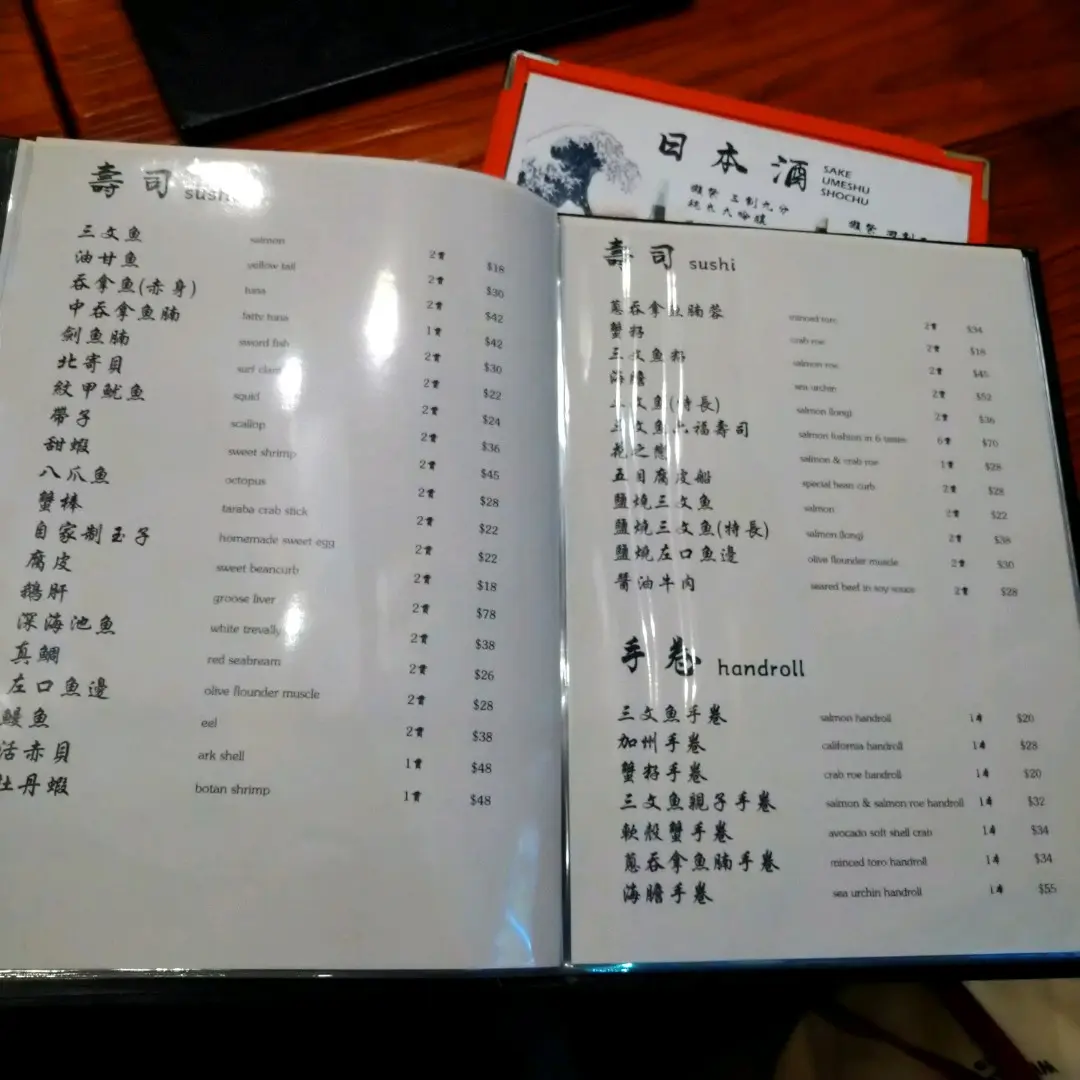 日本酒 SAKE
UMESHU
SHOCHU
獺祭 三割九分
純米大吟釀
獺祭
壽司 sushi
三文魚 salmon 2貫 $18
油甘魚 yellow tail 2貫 $30
吞拿魚(赤身) tuna 2貫 $42
中吞拿魚腩 fatty tuna 1貫 $42
劍魚腩 sword fish 2貫 $30
北寄貝 surf clam 2貫 $22
紋甲魷魚 squid 2貫 $24
帶子 scallop 2貫 $36
甜蝦 sweet shrimp 2貫 $45
八爪魚 octopus 2貫 $28
蟹棒 taraba crab stick 2貫 $22
自家制玉子 homemade sweet egg 2貫 $22
腐皮 sweet beancurb 2貫 $18
鵝肝 groose liver 2貫 $78
深海池魚 white trevally 2貫 $38
真鯛 red seabream 2貫 $26
左口魚邊 olive flounder muscle 2貫 $28
鰻魚 eel 2貫 $38
活赤貝 ark shell 1貫 $48
牡丹蝦 botan shrimp 1貫 $48
壽司 sushi
蔥吞拿魚腩蓉 minced toro 2貫 $34
蟹籽 crab roe 2貫 $18
三文魚籽 salmon roe 2貫 $45
海膽 sea urchin 2貫 $52
三文魚(特長) salmon (long) 2貫 $36
三文魚六福壽司 salmon fushion in 6 tastes 6貫 $70
花之戀 salmon & crab roe 1貫 $28
五目腐皮船 special bean curb 2貫 $28
鹽燒三文魚 salmon 2貫 $22
鹽燒三文魚(特長) salmon (long) 2貫 $38
鹽燒左口魚邊 olive flounder muscle 2貫 $30
醬油牛肉 seared beef in soy sauce 2貫 $28
手卷 handroll
三文魚手卷 salmon handroll 1本 $20
加州手卷 california handroll 1本 $28
蟹籽手卷 crab roe handroll 1本 $20
三文魚親子手卷 salmon & salmon roe handroll 1本 $32
軟殼蟹手卷 avocado soft shell crab 1本 $34
蔥吞拿魚腩手卷 minced toro handroll 1本 $34
海膽手卷 sea urchin handroll 1本 $55